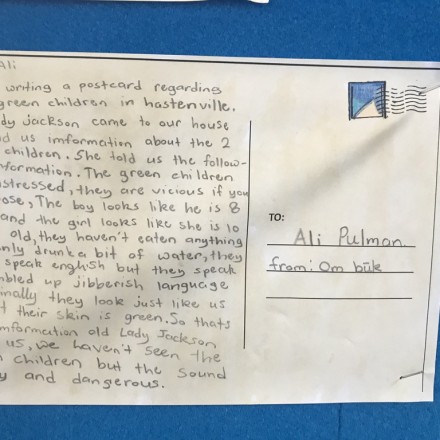 Ali
writing a postcard regarding
green children in hastenville.
dy Jackson came to our house
d us imformation about the 2
children. She told us the follow-
formation. The green children
stressed, they are vicious if you
ose, The boy looks like he is 8
and the girl looks like she is 10
old, they haven't eaten anything
nly drunk a bit of water, they
speak english but they speak
mbled up jibberish language
inally they look just like us
t their skin is green. So thats
mformation old Lady Jackson
us, we haven't seen the
n children but the sound
y and dangerous.
TO:
Ali Pulman
from: Om būk